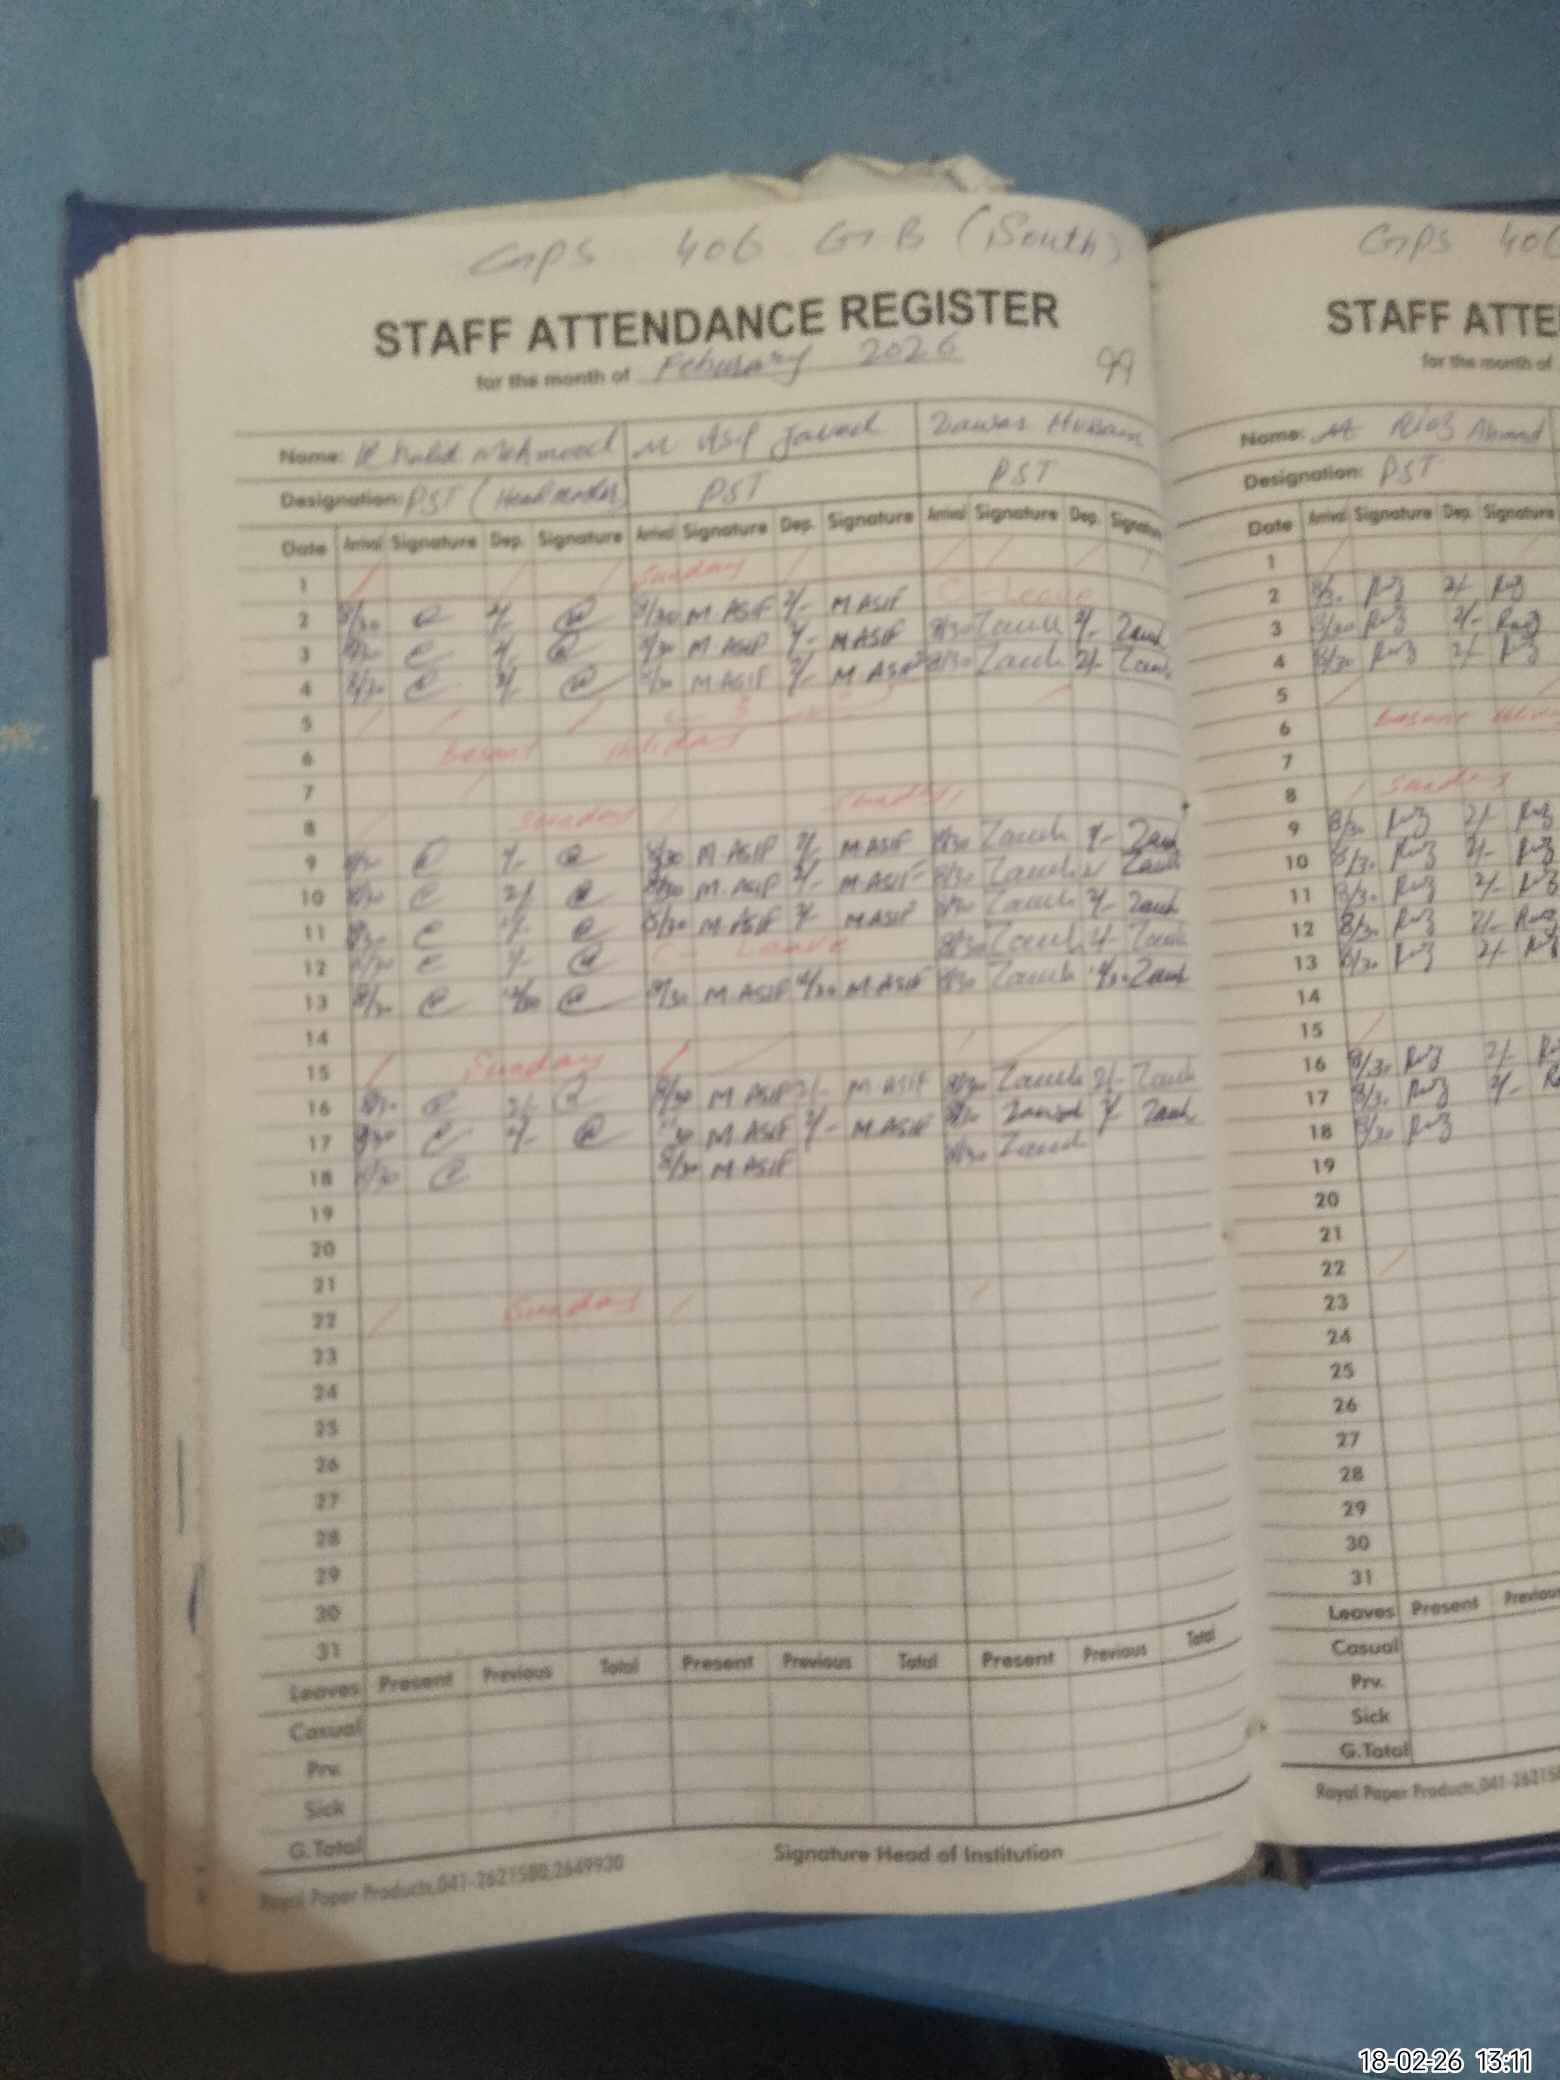 GPS 406 GB (South)
STAFF ATTENDANCE REGISTER
for the month of February 2026
99
Name: Khalid Mehmood M Asif Javed Zawar Hussain
Designation: PST (Headmaster) PST PST
Date Arrival Signature Dep. Signature Arrival Signature Dep. Signature Arrival Signature Dep. Signature
1 Sunday
2 8/30 2/- 8/30 M.ASIF 2/- M ASIF C-Leave
3 8/30 2/- 8/30 M.ASIF 2/- M.ASIF 8/30 2/-
4 8/30 2/- 8/30 M.ASIF 2/- M.ASIF 8/30 2/-
5
6 Basant Holiday
7
8 Sunday Sunday
9 8/30 2/- 8/30 M.ASIF 2/- M.ASIF 8/30 2/-
10 8/30 2/- 8/30 M.ASIF 2/- M.ASIF 8/30
11 8/30 2/- 8/30 M.ASIF 2/- M.ASIF 8/30 2/-
12 8/30 2/- C-Leave 8/30 2/-
13 8/30 12/30 8/30 M.ASIF 12/30 M.ASIF 8/30 12/30
14
15 Sunday
16 8/30 2/- 8/30 M.ASIF 2/- M.ASIF 8/30 2/-
17 8/30 2/- 8/30 M.ASIF 2/- M.ASIF 8/30 2/-
18 8/30 8/30 M.ASIF 8/30
19
20
21
22 Sunday
23
24
25
26
27
28
29
30
31
Leaves Present Previous Total Present Previous Total Present Previous Total
Casual
Prv.
Sick
G.Total
Signature Head of Institution
Royal Paper Products,041-2621580,2649930
GPS 406
STAFF ATTE
for the month of
Name: M Riaz Ahmad
Designation: PST
Date Arrival Signature Dep. Signature
1
2 8/30 2/-
3 8/30 2/-
4 8/30 2/-
5
6 Basant
7
8 Sunday
9 8/30 2/-
10 8/30 2/-
11 8/30 2/-
12 8/30 2/-
13 8/30 2/-
14
15
16 8/30 2/-
17 8/30 2/-
18 8/30
19
20
21
22
23
24
25
26
27
28
29
30
31
Leaves Present Previous
Casual
Prv.
Sick
G.Total
Royal Paper Products,041-262158
18-02-26 13:11